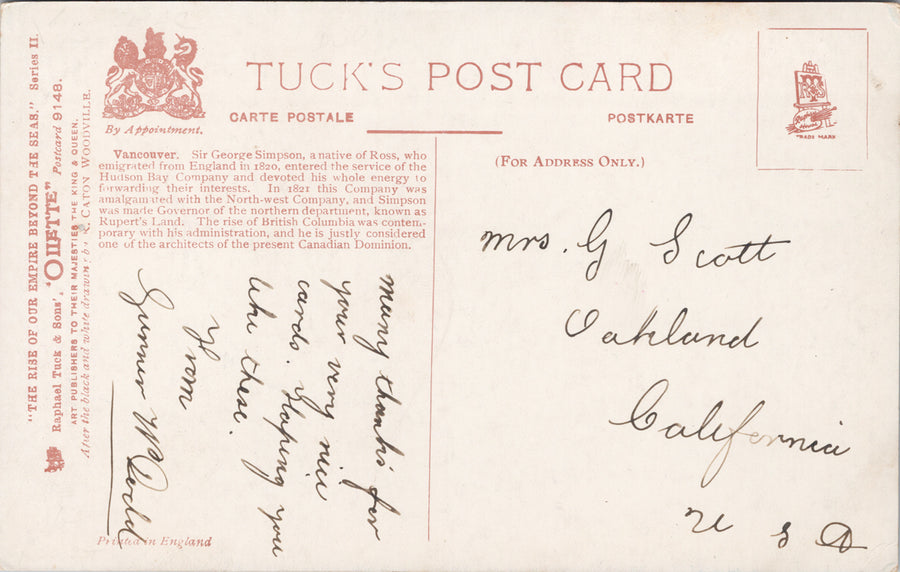 "THE RISE OF OUR EMPIRE BEYOND THE SEAS." Series II.
Raphael Tuck & Sons' "OILETTE" Postcard 9148.
ART PUBLISHERS TO THEIR MAJESTIES THE KING & QUEEN.
After the black and white drawing by R. CATON WOODVILLE.
By Appointment.
TUCK'S POST CARD
CARTE POSTALE
POSTKARTE
TRADE MARK
(FOR ADDRESS ONLY.)
Vancouver. Sir George Simpson, a native of Ross, who
emigrated from England in 1820, entered the service of the
Hudson Bay Company and devoted his whole energy to
forwarding their interests. In 1821 this Company was
amalgamated with the North-west Company, and Simpson
was made Governor of the northern department, known as
Rupert's Land. The rise of British Columbia was contem-
porary with his administration, and he is justly considered
one of the architects of the present Canadian Dominion.
Many thanks for
your very nice
cards. Hoping you
like these.
From
Gunner W Dodd
Mrs. G Scott
Oakland
California
U S A
Printed in England